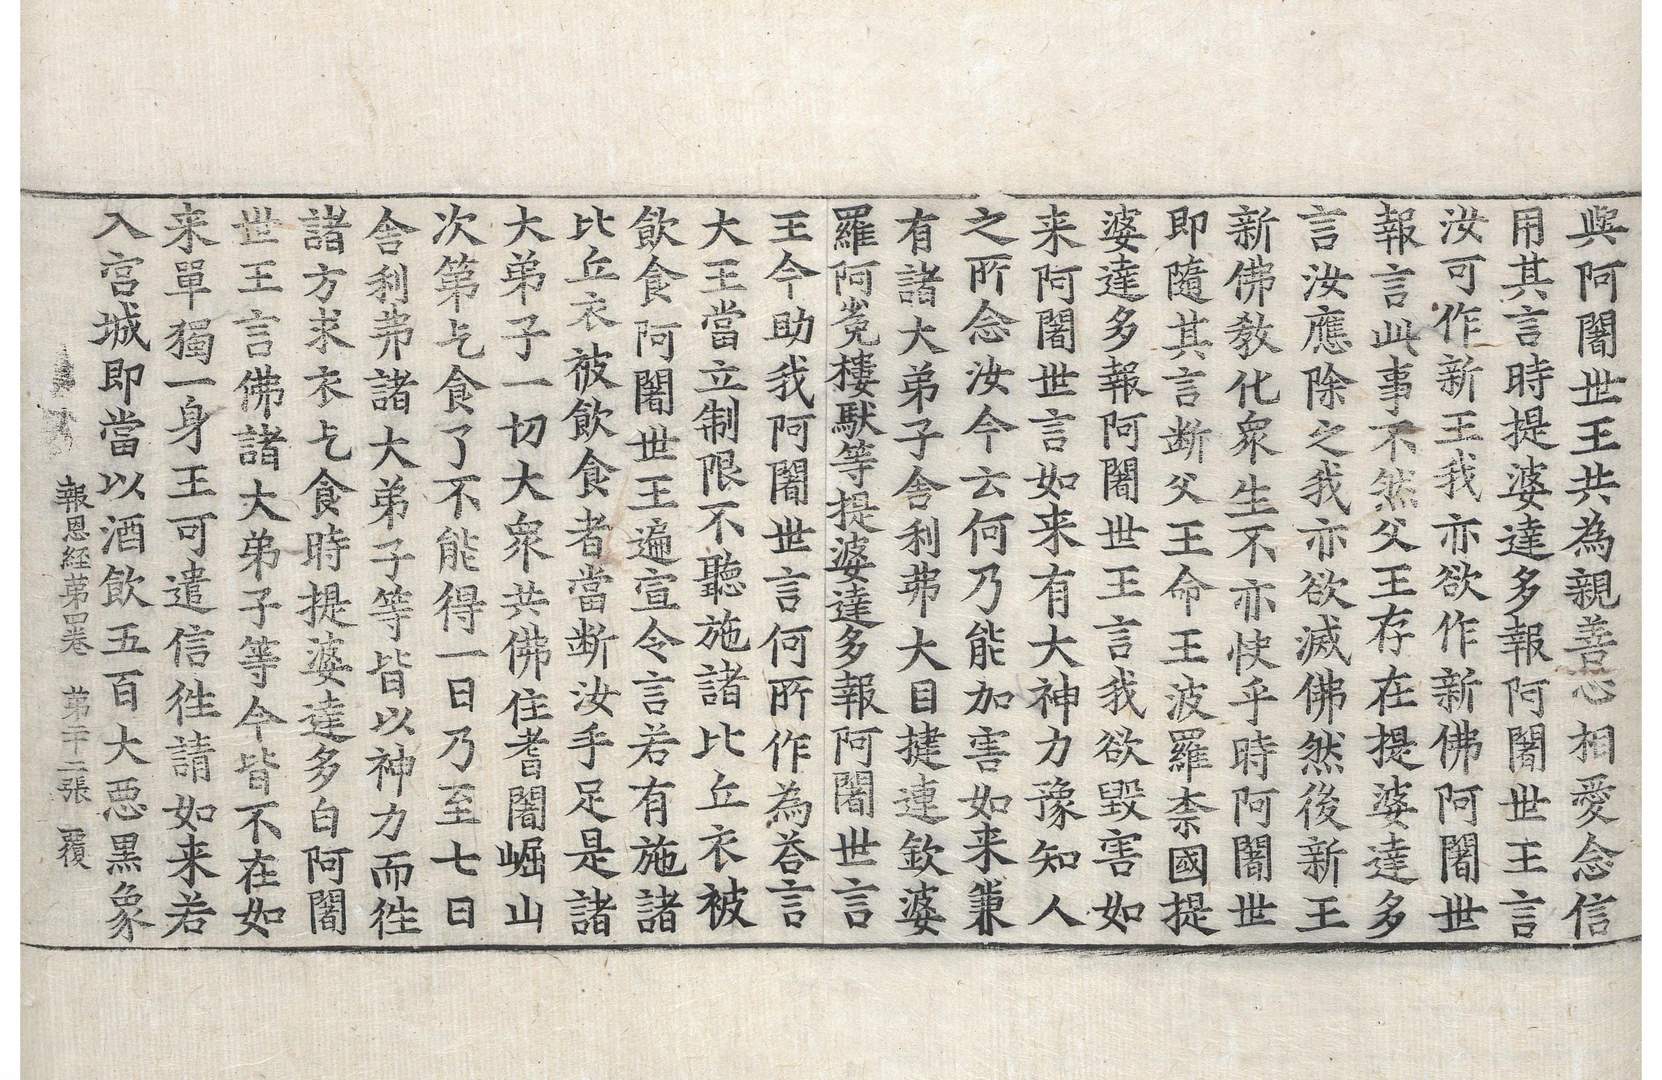 與阿闍世王共為親善心相愛念信
用其言時提婆達多報阿闍世王言
汝可作新王我亦欲作新佛阿闍世
報言此事不然父王存在提婆達多
言汝應除之我亦欲滅佛然後新王
新佛教化衆生不亦快乎時阿闍世
即隨其言断父王命王波羅柰國提
婆達多報阿闍世王言我欲毀害如
来阿闍世言如来有大神力豫知人
之所念汝今云何乃能加害如来兼
有諸大弟子舍利弗大目揵連欽婆
羅阿㝹樓馱等提婆達多報阿闍世言
王今助我阿闍世言何所作為荅言
大王當立制限不聽施諸比丘衣被
飲食阿闍世王遍宣令言若有施諸
比丘衣被飲食者當断汝手足是諸
大弟子一切大衆共佛住耆闍崛山
次第乞食了不能得一日乃至七日
舎利弗諸大弟子等皆以神力而徃
諸方求衣乞食時提婆達多白阿闍
世王言佛諸大弟子等今皆不在如
来單獨一身王可遣信徃請如来若
入宮城即當以酒飲五百大惡黒象
報恩経苐四卷　苐十二張　覆